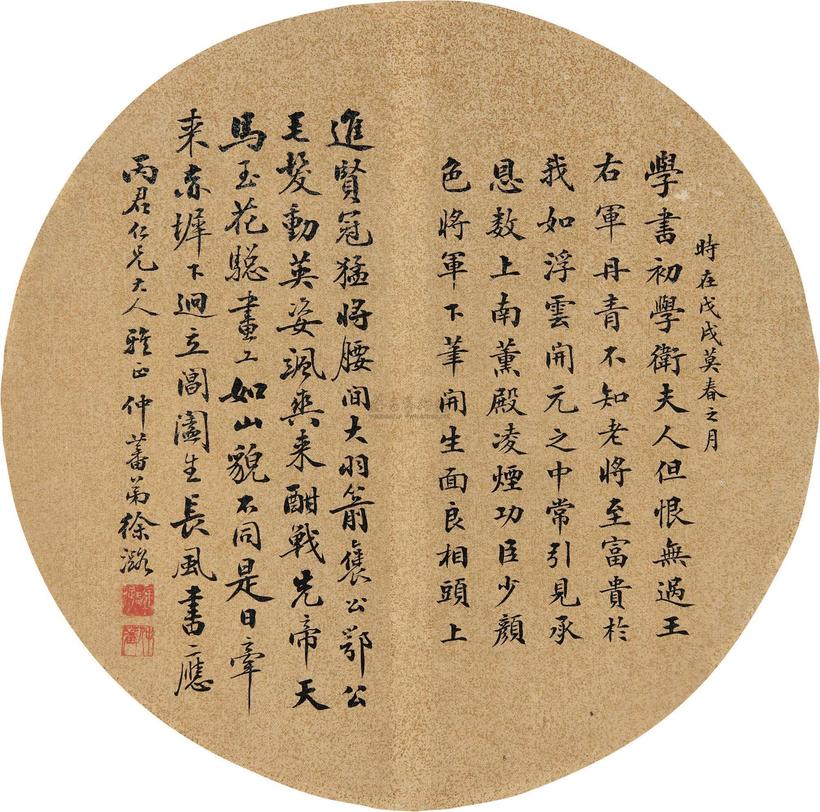 時在戊戌莫春之月
學書初學衛夫人但恨無過王
右軍丹青不知老將至富貴於
我如浮雲開元之中常引見承
恩数上南薰殿凌煙功臣少顏
色將軍下筆開生面良相頭上
進賢冠猛将腰间大羽箭襃公鄂公
毛髮動英姿颯爽来酣戰先帝天
馬玉花驄畫工如山貌不同是日牽
来赤墀下迥立閶闔生長風書應
丙君仁兄大人雅正仲蕃弟徐潞